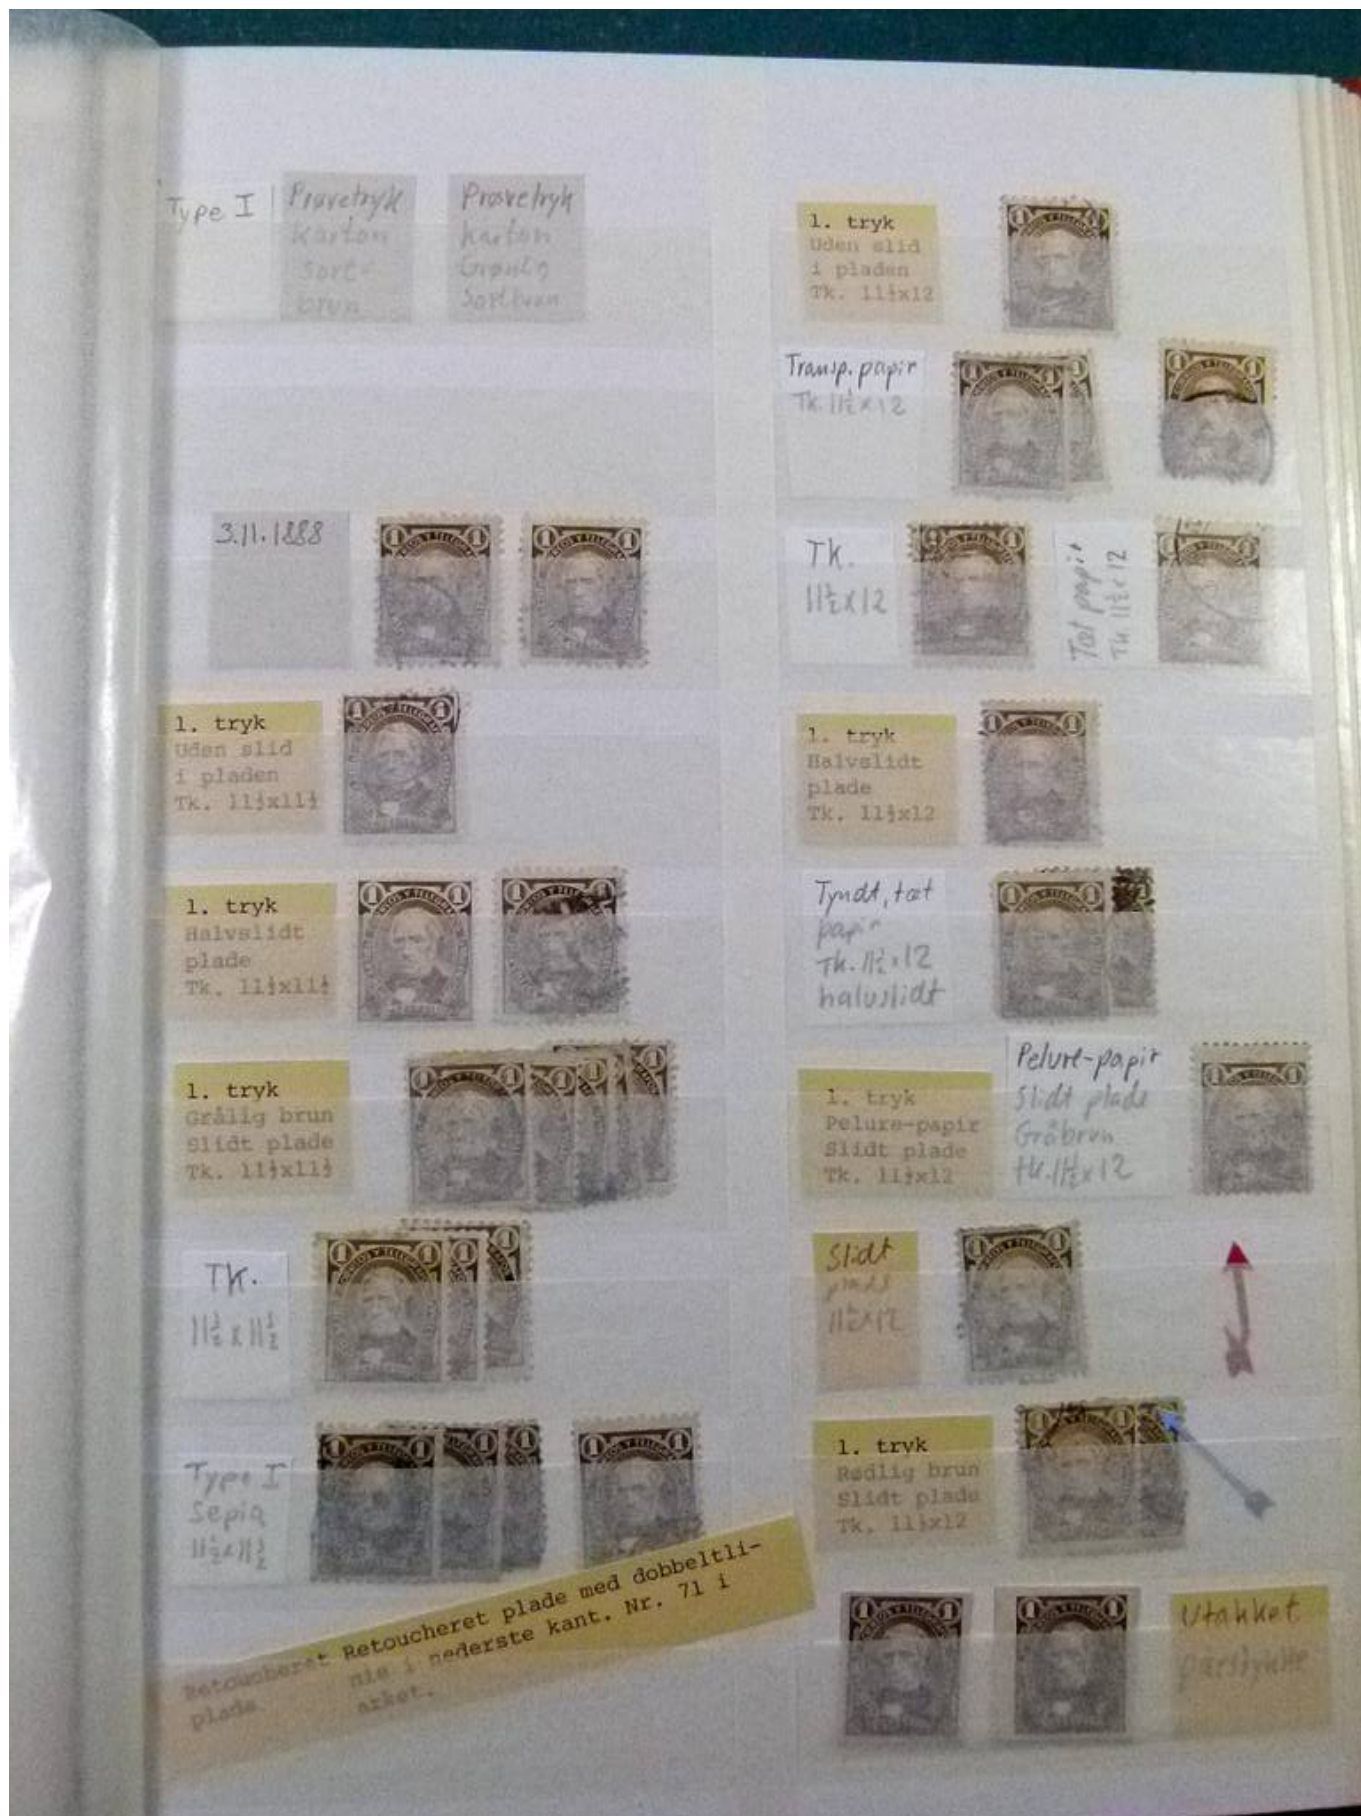 Type I
Prøvetryk
karton
sort-
brun
Prøvetryk
karton
Grønlig
Sortbrun
3.11.1888
1. tryk
Uden slid
i pladen
Tk. 11½x11½
1. tryk
Halvslidt
plade
Tk. 11½x11½
1. tryk
Grålig brun
Slidt plade
Tk. 11½x11½
Tk.
11½x11½
Type I
Sepia
11½x11½
Retoucheret
plade
Retoucheret plade med dobbeltli-
nie i nederste kant. Nr. 71 i
arket.
1. tryk
Uden slid
i pladen
Tk. 11½x12
Transp. papir
Tk. 11½x12
Tk.
11½x12
Tæt papir
Tk 11½x12
1. tryk
Halvslidt
plade
Tk. 11½x12
Tyndt, tæt
papir
Tk. 11½x12
halvslidt
1. tryk
Pelure-papir
Slidt plade
Tk. 11½x12
Pelure-papir
Slidt plade
Gråbrun
tk. 11½x12
Slidt
plade
11½x12
1. tryk
Rødlig brun
Slidt plade
Tk. 11½x12
Utakket
parstykke